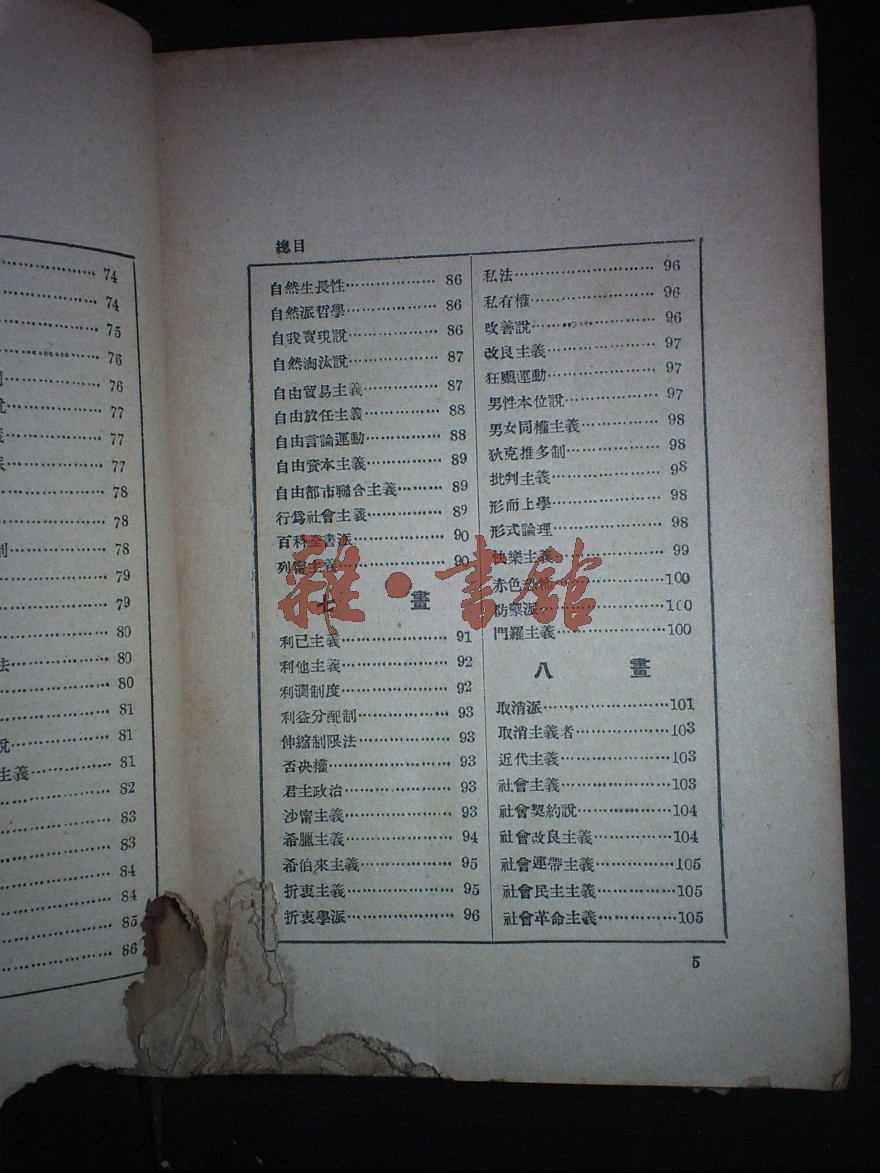 74
74
75
76
76
77
77
77
78
78
78
79
79
80
80
80
81
81
主義 81
82
83
83
84
84
85
86
總目
自然生長性 86
自然派哲學 86
自我實現說 86
自然淘汰說 87
自由貿易主義 87
自由放任主義 88
自由言論運動 88
自由資本主義 89
自由都市聯合主義 89
行爲社會主義 89
百科全書派 90
列寧主義 90
七 畫
利己主義 91
利他主義 92
利潤制度 92
利益分配制 93
伸縮制限法 93
否決權 93
君主政治 93
沙甯主義 93
希臘主義 94
希伯來主義 95
折衷主義 95
折衷學派 96
私法 96
私有權 96
改善說 96
改良主義 97
狂飈運動 97
男性本位說 97
男女同權主義 98
狄克推多制 98
批判主義 98
形而上學 98
形式論理 98
快樂主義 99
赤色恐怖 100
防禦派 100
門羅主義 100
八 畫
取消派 101
取消主義者 103
近代主義 103
社會主義 103
社會契約說 104
社會改良主義 104
社會連帶主義 105
社會民主主義 105
社會革命主義 105
5
雜·書館